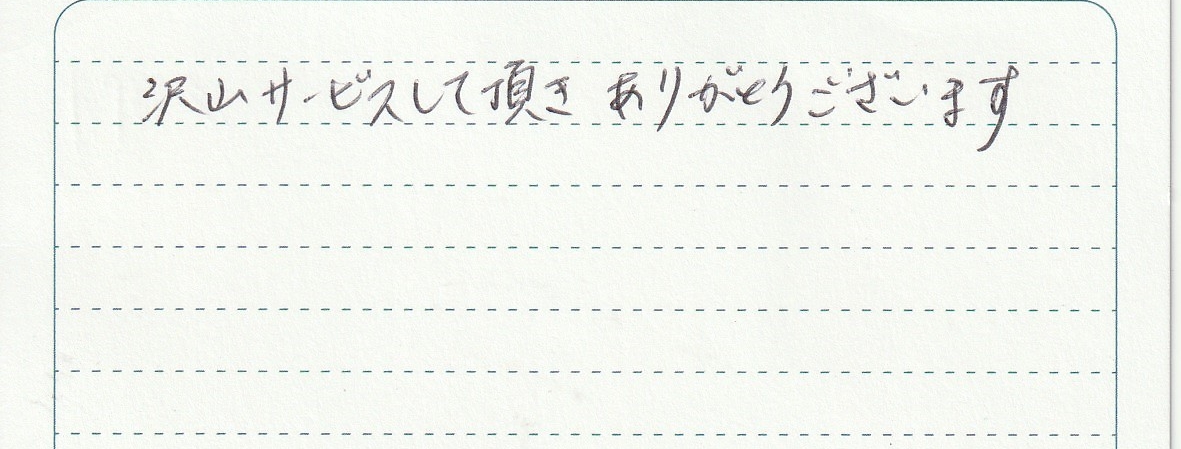 沢山サービスして頂き ありがとうございます